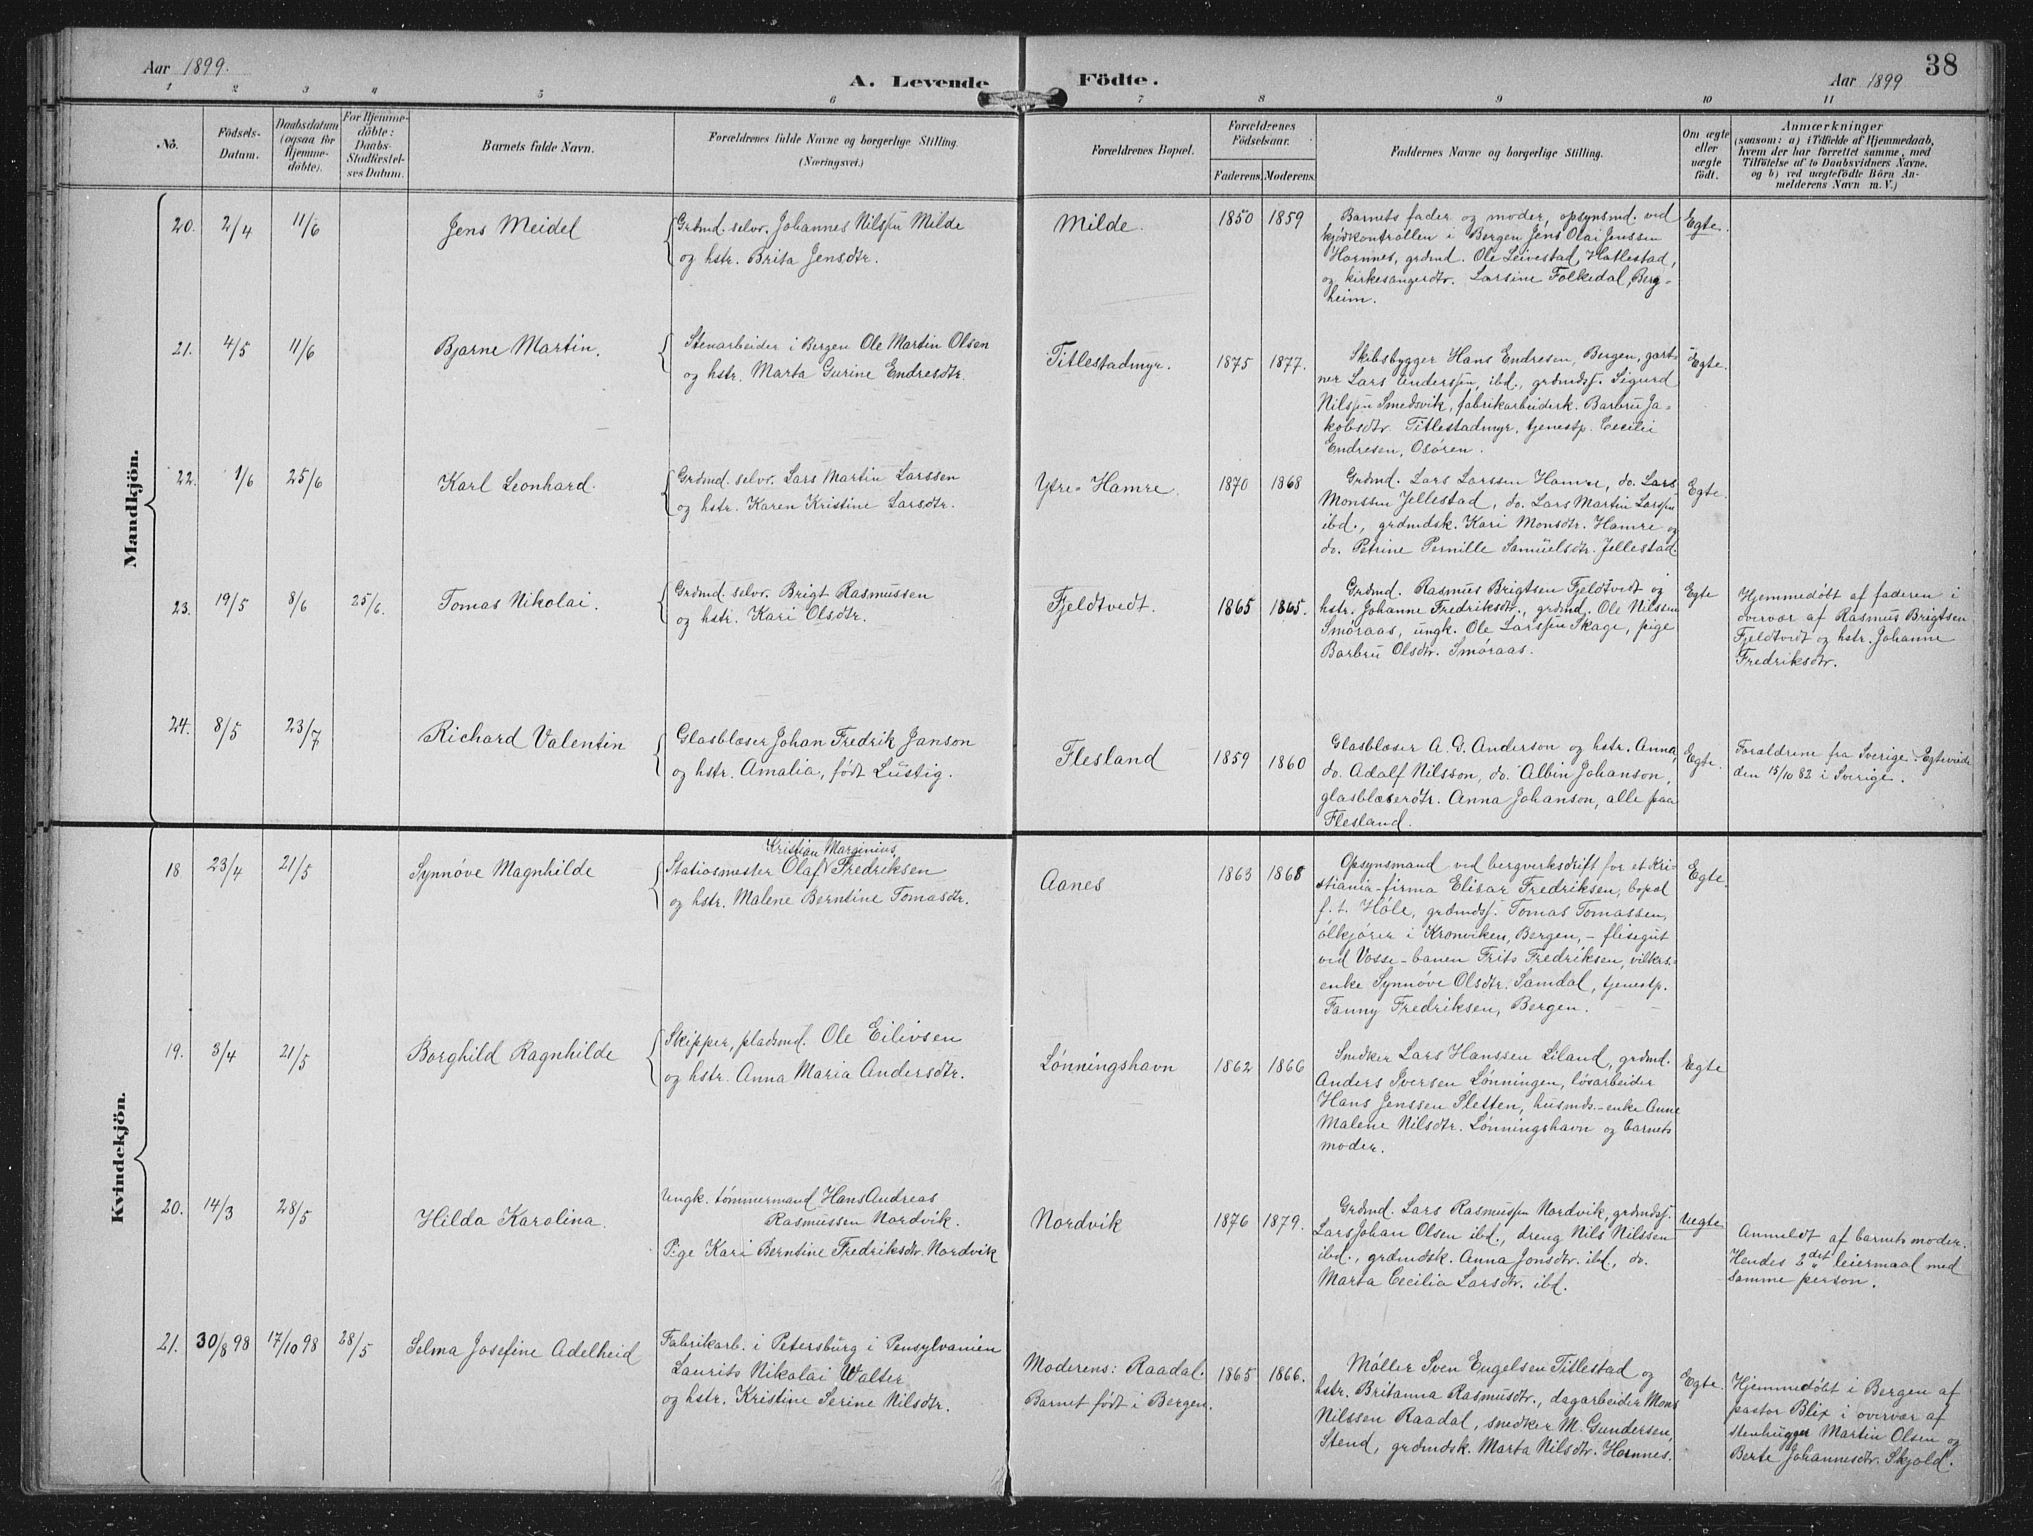 38
Aar 1899.
A. Levende Födte.
Aar 1899
1 2 3 4 5 6 7 8 9 10 11
No.
Födsels-
Datum.
Daabsdatum
(ogsaa for
Hjemme-
døbte).
For Hjemme-
døbte:
Daabs-
Stadfæstel-
ses Datum.
Barnets fulde Navn.
Forældrenes fulde Navne og borgerlige Stilling.
(Næringsvei.)
Forældrenes Bopæl.
Forældrenes
Födselsaar.
Faderens. Moderens.
Faddernes Navne og borgerlige Stilling.
Om ægte
eller
uægte
födt.
Anmærkninger
(saasom: a) i Tilfælde af Hjemmedaab,
hvem der har forrettet samme, med
Tilföielse af to Daabsvidners Navne,
og b) ved uægtefödte Börn An-
melderens Navn m. V.)
Mandkjön.
20. 2/4 11/6
Jens Meidel
Grdmd. selvr. Johannes Nilssen Milde
og hstr. Brita Jensdtr.
Milde.
1850 1859
Barnets fader og moder, opsynsmd. ved
kjødkontrollen i Bergen Jens Olai Jenssen
Hornnes, grdmd. Ole Leivestad, Hatlestad,
og kirkesangerdtr. Larsine Folkedal, Berg-
heim.
Egte.
21. 4/5 11/6
Bjarne Martin.
Stenarbeider i Bergen Ole Martin Olsen
og hstr. Marta Gurine Endresdtr.
Titlestadmyr.
1875 1877.
Skibsbygger Hans Endresen, Bergen, gart-
ner Lars Anderssen, ibd., grdmdsf. Sigurd
Nilssen Smedsvik, fabrikarbeiderk. Barbru Ja-
kobsdtr. Titlestadmyr, tjenestp. Cecilie
Endresen, Osøren.
Egte.
22. 1/6 25/6
Karl Leonhard.
Grdmd. selvr. Lars Martin Larssen
og hstr. Karen Kristine Larsdtr.
Ytre-Hamre.
1870 1868
Grdmd. Lars Larssen Hamre, do. Lars
Monssen Jellestad, do. Lars Martin Larssen
ibd., grdmdsk. Kari Monsdtr. Hamre og
do. Petrine Pernille Samuelsdtr. Jellestad.
Egte.
23. 19/5 8/6 25/6.
Tomas Nikolai.
Grdmd. selvr. Brigt Rasmussen
og hstr. Kari Olsdtr.
Fjeldtvedt.
1865 1865.
Grdmd. Rasmus Brigtsen Fjeldtvedt og
hstr. Johanne Fredriksdtr., grdmd. Ole Nilssen
Smøraas, ungk. Ole Larssen Skage, pige
Barbru Olsdtr. Smøraas.
Egte
Hjemmedøbt af faderen i
overvær af Rasmus Brigtsen
Fjeldtvedt og hstr. Johanne
Fredriksdtr.
24. 8/5 23/7
Richard Valentin
Glasblæser Johan Fredrik Janson
og hstr. Amalia, født Lustig.
Flesland
1859 1860
Glasblæser A. G. Anderson og hstr. Anna,
do. Adolf Nilsson, do. Albin Johanson,
glasblæserdtr. Anna Johanson, alle paa
Flesland.
Egte.
Foraldrene fra Sverige. Egteviede
den 15/10 82 i Sverige.
Kvindekjön.
18 23/4 21/5
Synnøve Magnhilde
Kristian Marginius
Stationsmester Olaf Fredriksen
og hstr. Malene Berntine Tomasdtr.
Aanes
1863 1868
Opsynsmand ved bergverksdrift for et Kri-
stiania-firma Elisar Fredriksen, bopæl
f. t. Høle, grdmdsf. Tomas Tomassen,
ølkjører i Kronviken, Bergen, – flisegut
ved Vosse-banen Frits Fredriksen,
enke Synnøve Olsdtr. Samdal, tjenestp.
Fanny Fredriksen, Bergen.
Egte.
19. 3/4 21/5
Borghild Ragnhilde
Skipper, pladsmd. Ole Eilivsen
og hstr. Anna Maria Andersdtr.
Lønningshavn
1862 1866
Snedker Lars Hanssen Liland, grdmd.
Anders Iversen Lønningen, løsarbeider
Hans Jenssen Sletten, husmds.-enke Anne
Malene Nilsdtr. Lønningshavn og barnets
moder.
Egte
20. 14/3 28/5
Hilda Karolina.
Ungk. tømmermand Hans Andreas
Rasmussen Nordvik.
Pige Kari Berntine Fredriksdtr. Nordvik
Nordvik
1876 1879.
Grdmd. Lars Rasmussen Nordvik, grdmdsf.
Lars Johan Olsen ibd., dreng Nils Nilssen
ibd., grdmdsk. Anna Jonsdtr. ibd., do.
Marta Cecilia Larsdtr. ibd.
Uegte
Anmeldt af barnets moder.
Hendes 2det leiermaal med
samme person.
21. 30/8 98 17/10 98 28/5
Selma Josefine Adelheid
Fabrikarb. i Petersburg i Pensylvanien
Laurits Nikolai Walter
og hstr. Kristine Serine Nilsdtr.
Moderens: Raadal.
Barnet født i Bergen.
1865 1866.
Møller Sven Engelsen Titlestad og
hstr. Britanna Rasmusdtr., dagarbeider Mons
Nilssen Raadal, snedker M. Gundersen,
Stend, grdmdsk. Marta Nilsdtr. Hornnes.
Egte.
Hjemmedøbt i Bergen af
pastor Blix i overvær af
stenhugger Martin Olsen og
Berte Johannesdtr. Skjold.